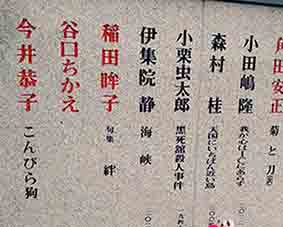 向田安正 菊と刀
小田嶋隆 我が心はICにあらず
森村桂 天国にいちばん近い島
小栗虫太郎 黒死館殺人事件
伊集院静 海峡
稲田眸子 句集 絆
谷口ちかえ
今井恭子 こんぴら狗